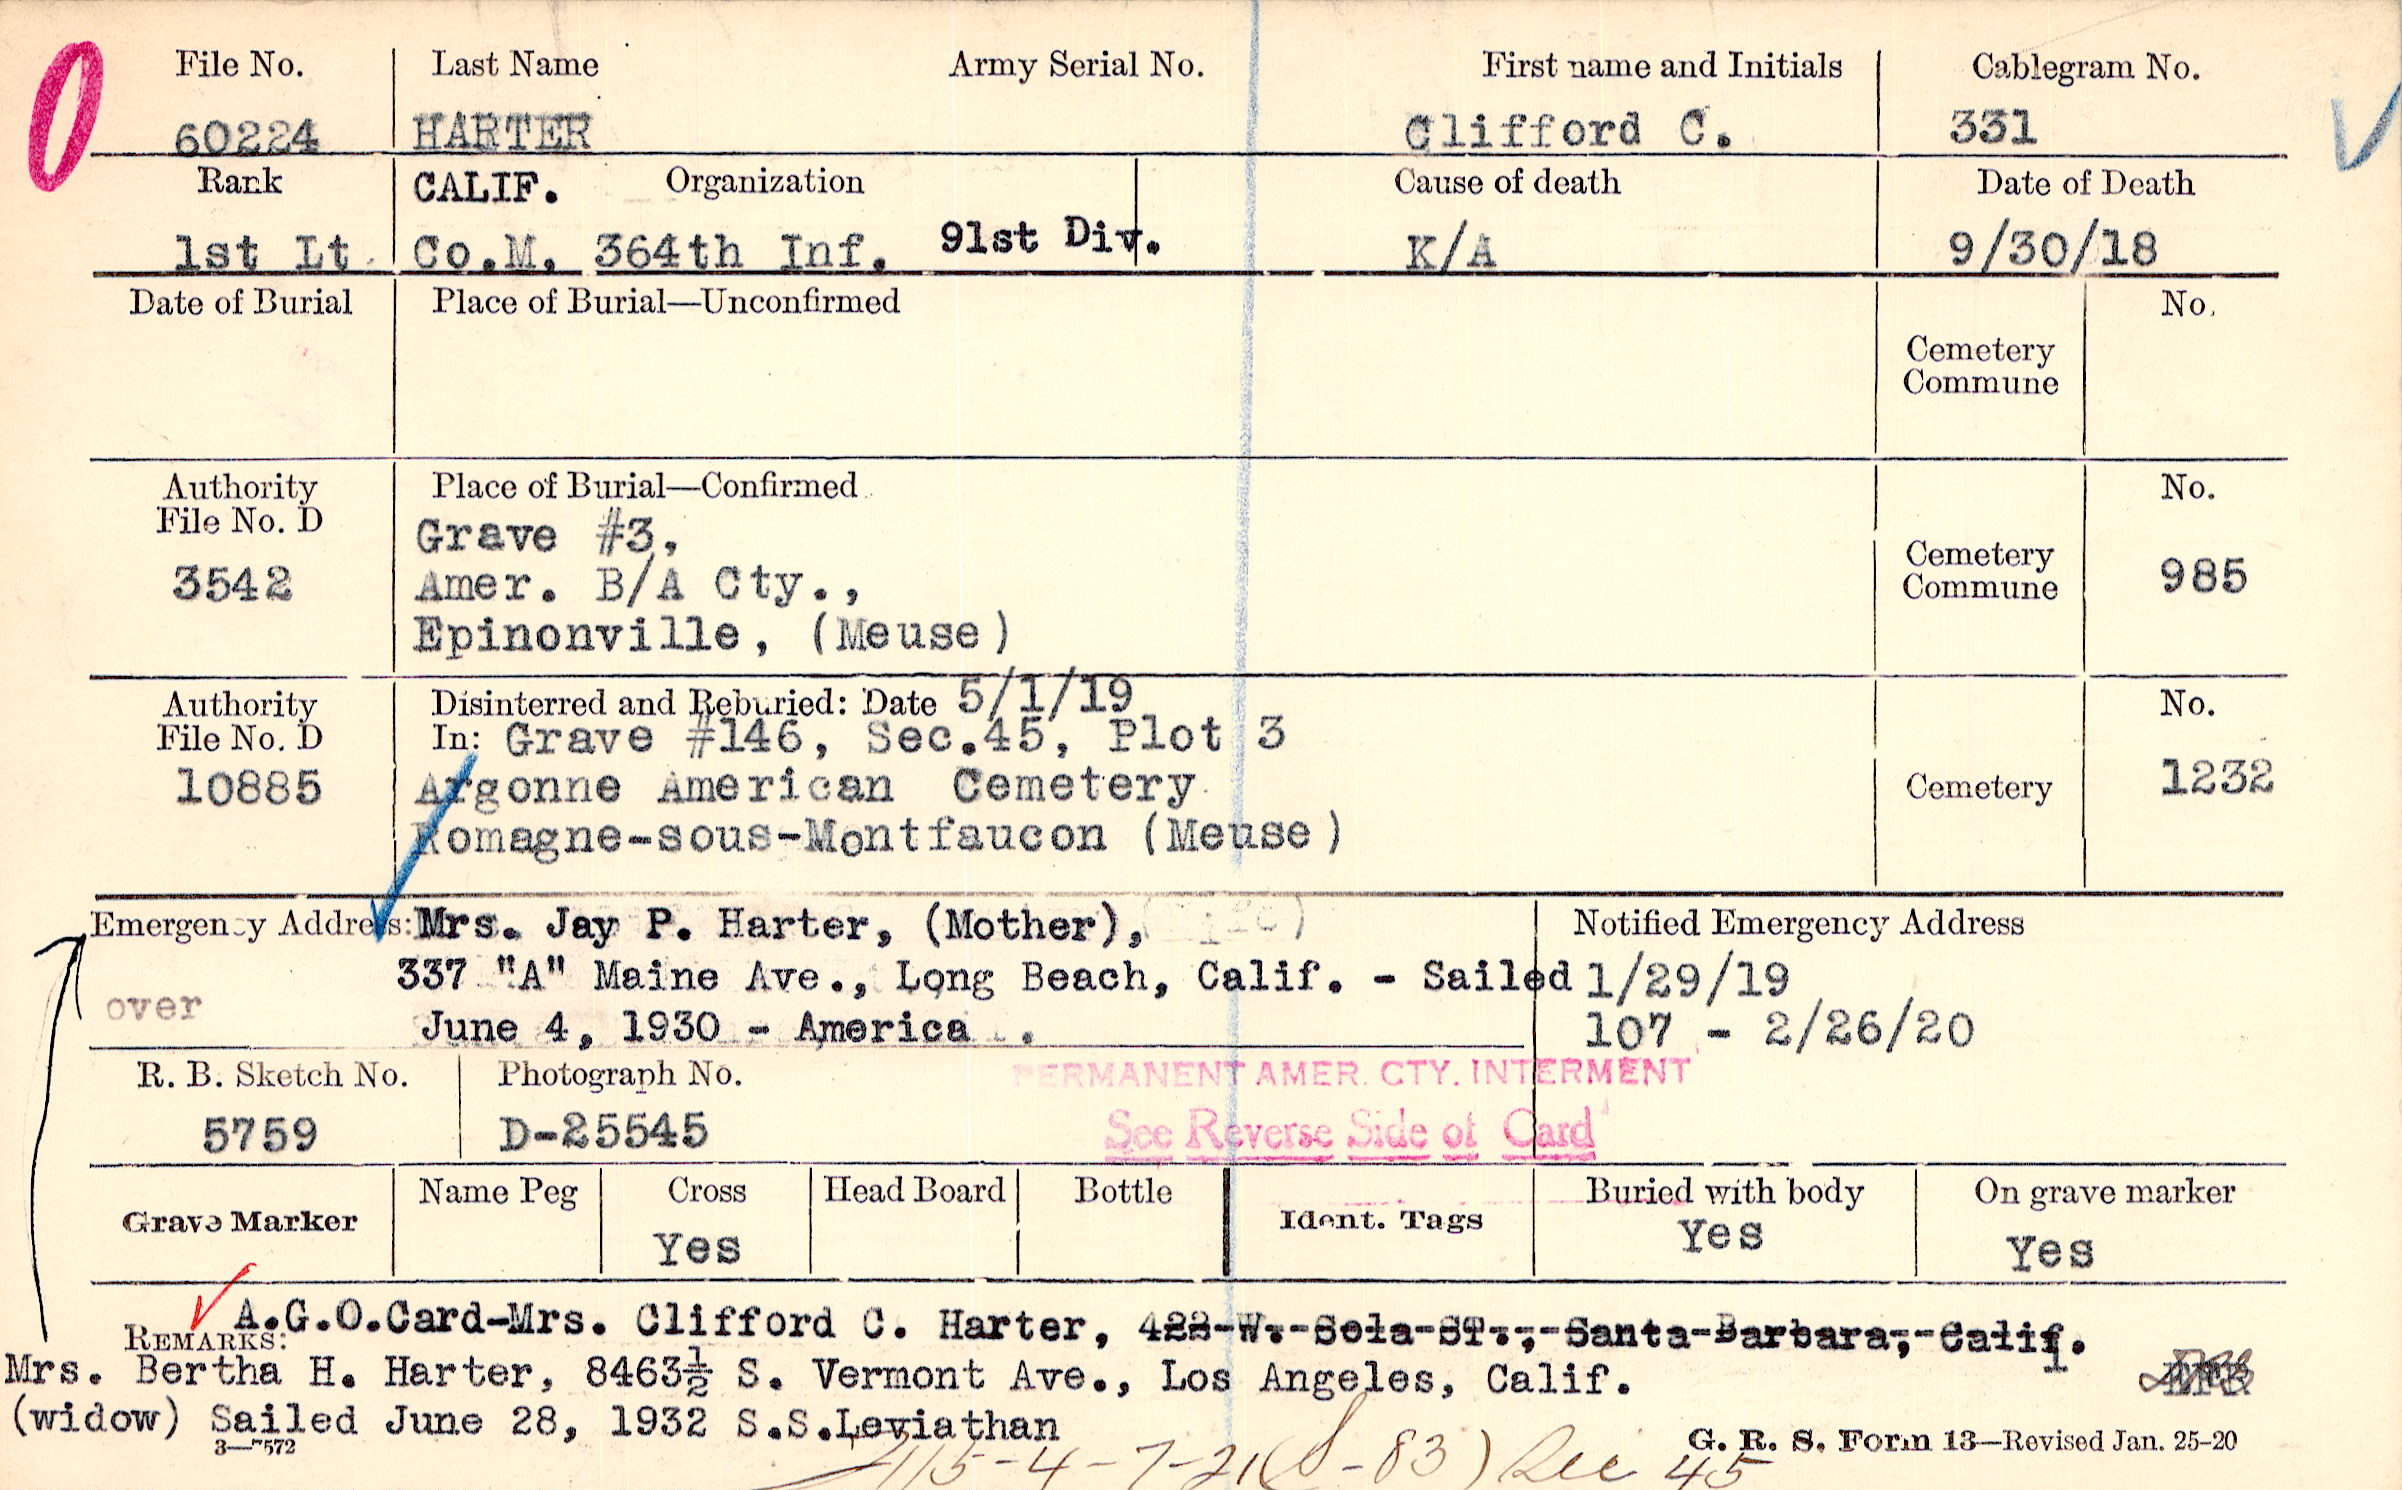 File No. Last Name Army Serial No. First name and Initials Cablegram No.
60224 HARTER Clifford C. 331
Rank CALIF. Organization Cause of death Date of Death
1st Lt. Co.M. 364th Inf. 91st Div. K/A 9/30/18
Date of Burial Place of Burial—Unconfirmed No.
Cemetery
Commune
Authority Place of Burial—Confirmed No.
File No. D
Grave #3,
3542 Amer. B/A Cty., Cemetery
Commune 985
Epinonville, (Meuse)
Authority Disinterred and Reburied: Date 5/1/19 No.
File No. D In: Grave #146, Sec.45, Plot 3
10885 Argonne American Cemetery Cemetery 1232
Romagne-sous-Montfaucon (Meuse)
Emergency Address: Mrs. Jay P. Harter, (Mother), Notified Emergency Address
337 "A" Maine Ave., Long Beach, Calif. - Sailed 1/29/19
over June 4, 1930 - America . 107 - 2/26/20
R. B. Sketch No. Photograph No. PERMANENT AMER. CTY. INTERMENT
5759 D-25545 See Reverse Side of Card
Grave Marker Name Peg Cross Head Board Bottle Ident. Tags Buried with body On grave marker
Yes Yes Yes
REMARKS: A.G.O.Card-Mrs. Clifford C. Harter, 422-W.-Sola-ST.,-Santa-Barbara,-Calif.
Mrs. Bertha H. Harter, 8463½ S. Vermont Ave., Los Angeles, Calif.
(widow) Sailed June 28, 1932 S.S.Leviathan
3—7572 G. R. S. Form 13—Revised Jan. 25-20
4-7-21 (S-83) Sec 45